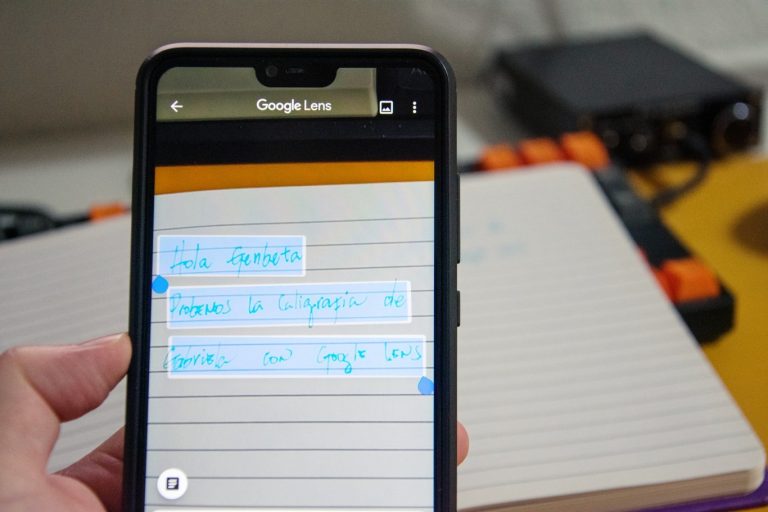 Google Lens
Hola Genbeta
Probemos la Caligrafía de
Gabriela con Google Lens